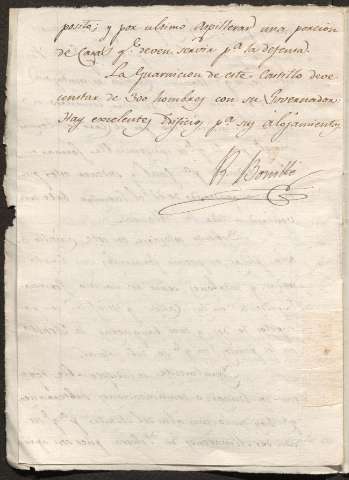 posito; y por ultimo Aspillerar una porcion
de Casas q.e deven servir p.a la defensa.
La Guarnicion de este Castillo deve
constar de 300 hombres con su Governador.
Hay excelentes Edificios p.a sus alojamientos
R Bonille